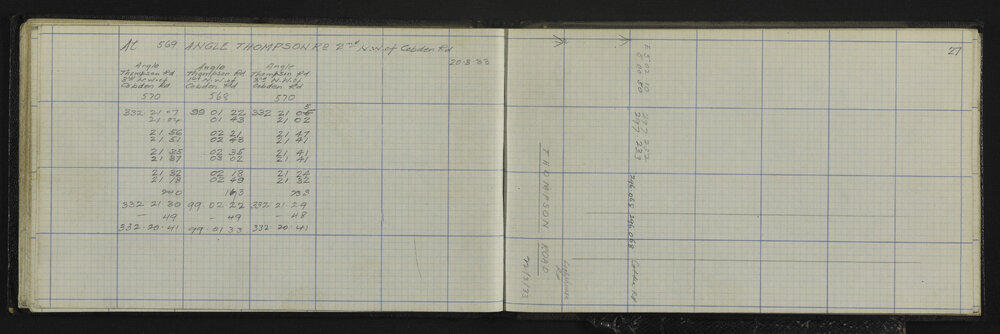 At 569 ANGLE THOMPSON Rd 2nd N.W. of Cobden Rd
20.3.33
Angle Angle Angle
Thompson Rd Thompson Rd Thompson Rd
3rd N.W. of 1st N.W. of 3rd N.W. of
Cobden Rd Cobden Rd Cobden Rd
570 568 570
332 21 07 99 01 22 332 21 05
21.04 01 43 21 02
21 56 02 21 21 47
21 51 02 48 21 41
21 35 02 35 21 41
21 37 03 02 21 41
21 32 02 18 21 24
21 78 02 49 21 32
332 21.30 99.02.22 332.21.29
— 49 — 49 — 48
332.20.41 99 01 33 332.20.41
27
297 233
THOMPSON ROAD
296.068 296.068 Cobden Rd